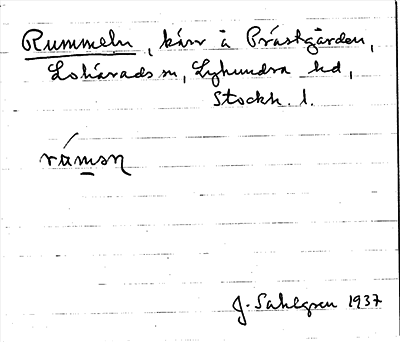 Rummeln, kärr å Prästgården,
Lohärads sn, Lyhundra hd,
Stockh. l.
rúmsn
J. Sahlgren 1937